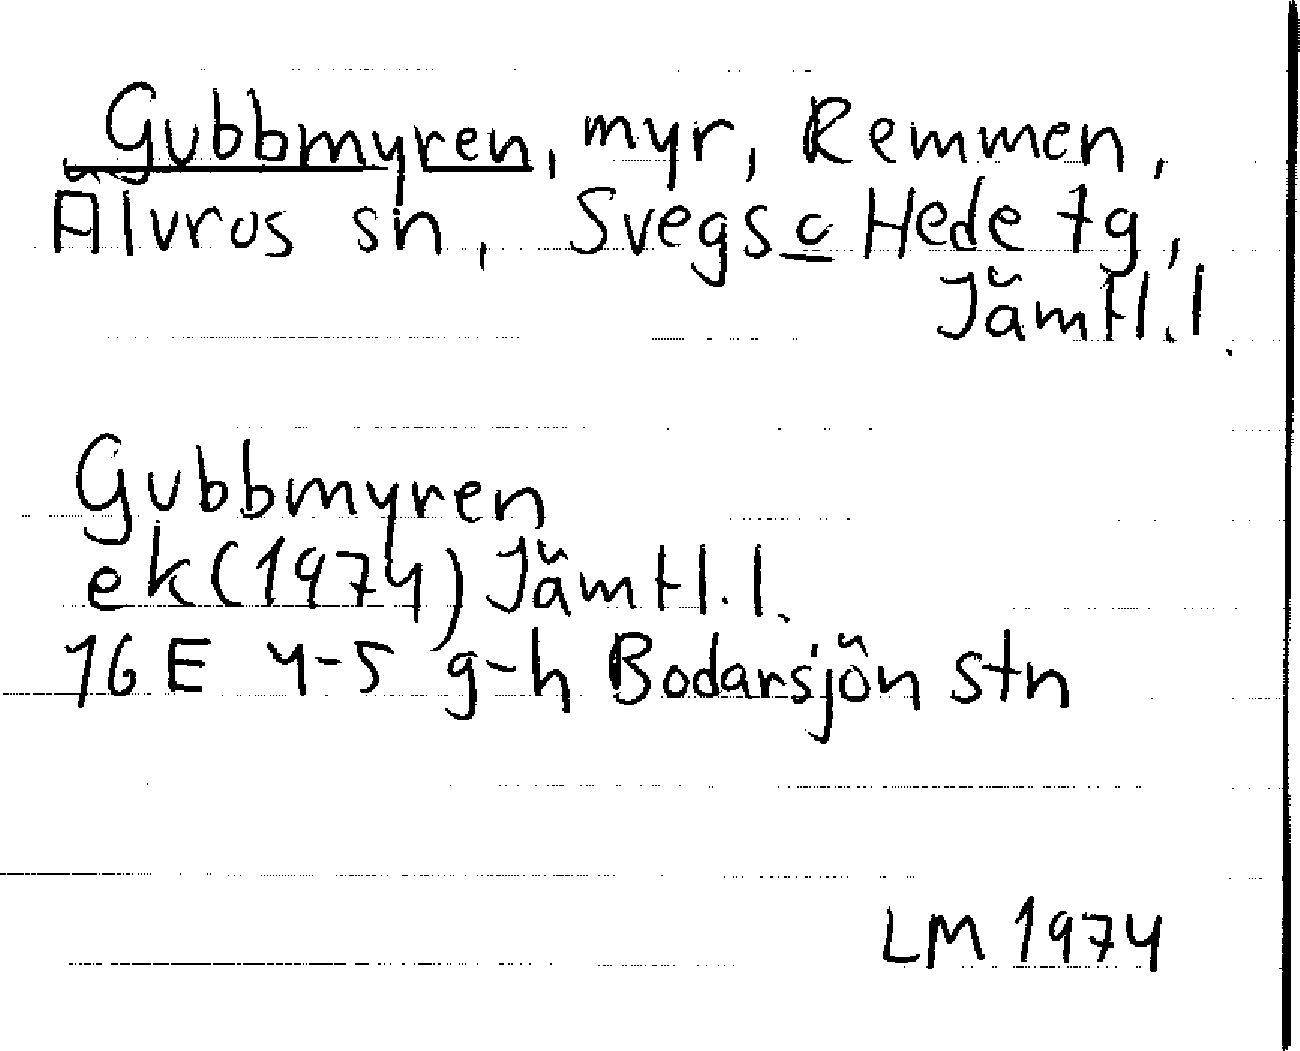 Gubbmyren, myr, Remmen,
Älvros sn, Svegs o Hede tg,
Jämtl.l.
Gubbmyren
ek (1974) Jämtl.l.
16 E 4-5 g-h Bodarsjön stn
LM 1974